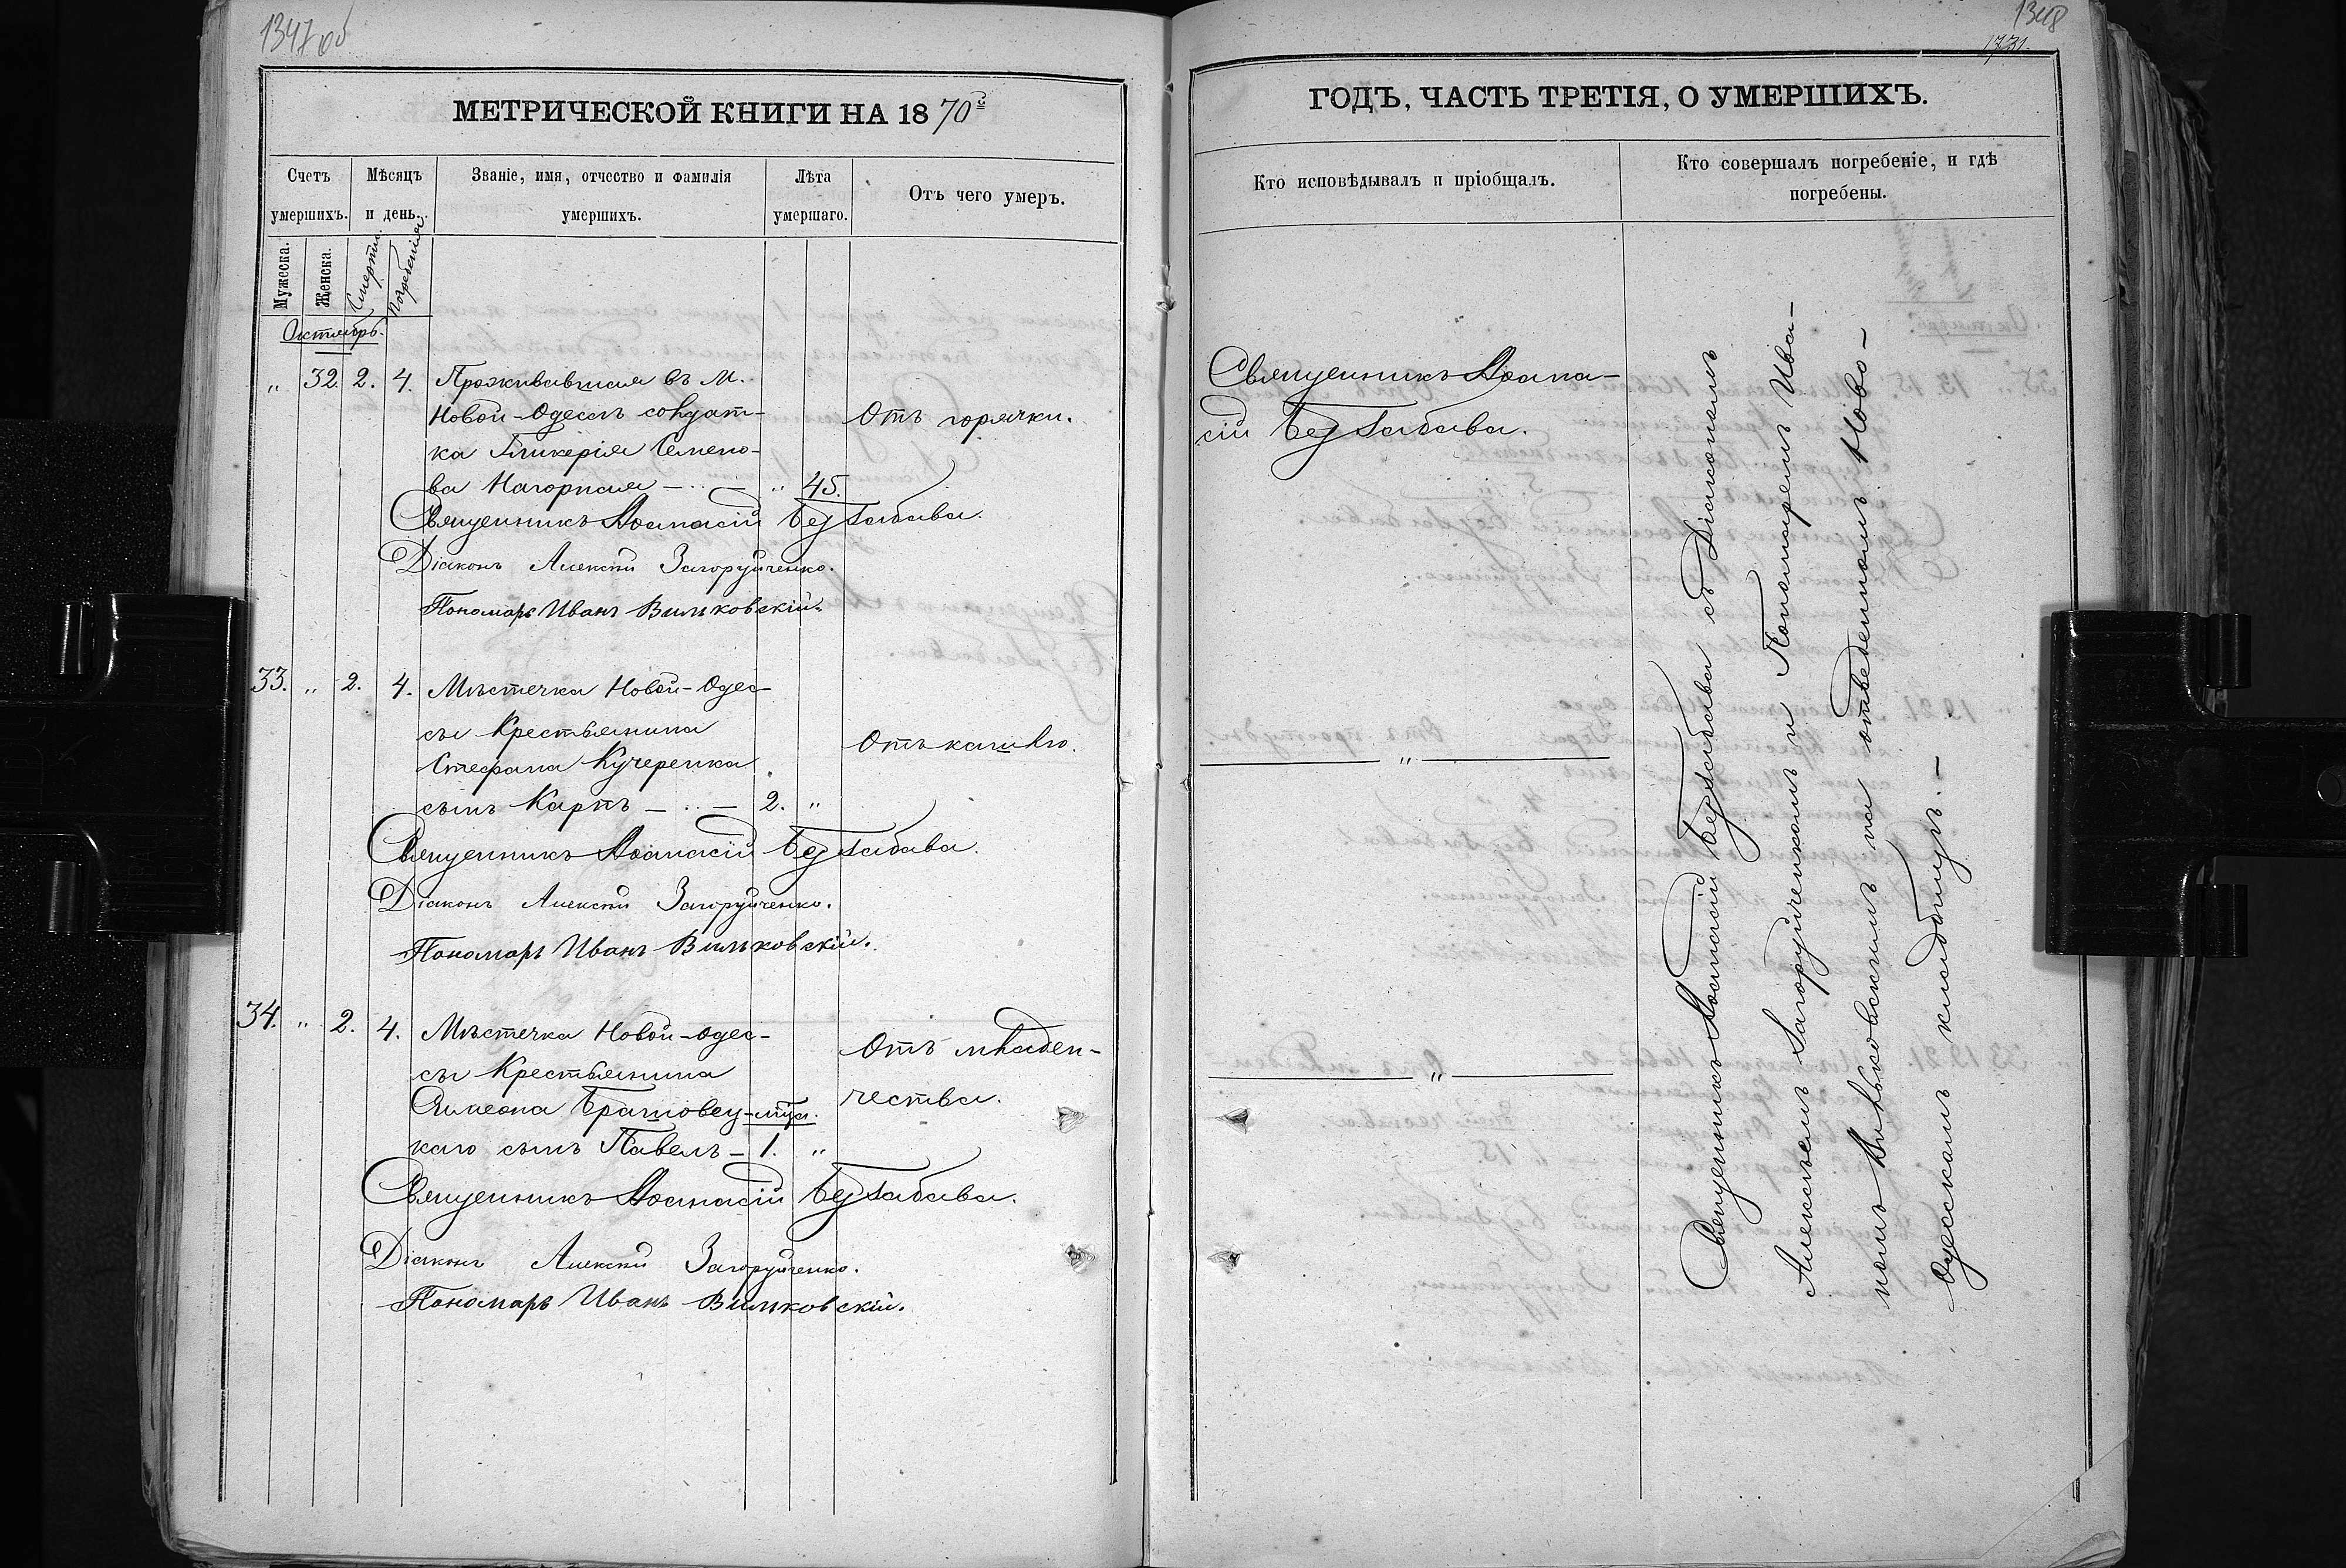 1347 об
МЕТРИЧЕСКОЙ КНИГИ НА 1870й
Счетъ умершихъ.
Мѣсяцъ и день.
Званіе, имя, отчество и фамилія умершихъ.
Лѣта умершаго.
Отъ чего умеръ.
Мужеска.
Женска.
Смерти.
Погребенія
Октябрь.
„ 32. 2. 4. Проживавшая въ м.
Новой-Одессѣ солдат-
ка Гликерія Семено-
ва Нагорная — „ 45.
Отъ горячки.
Священникъ Аѳанасій Безбабава.
Діаконъ Алексій Загоруйченко.
Пономарь Иванъ Вильковскій.
33. „ 2. 4. Мѣстечка Новой-Одес-
сы Крестьянина
Стефана Кучеренка
сынъ Карпъ — 2. „
Отъ кашлю.
Священникъ Аѳанасій Безбабава.
Діаконъ Алексій Загоруйченко.
Пономарь Иванъ Вильковскій.
34. „ 2. 4. Мѣстечка Новой-Одес-
сы Крестьянина
Симеона Братковец-
каго сынъ Павелъ — 1. „
Отъ младен-
чества.
Священникъ Аѳанасій Безбабава.
Діаконъ Алексій Загоруйченко.
Пономарь Иванъ Вильковскій.
1348
1731.
ГОДЪ, ЧАСТЬ ТРЕТІЯ, О УМЕРШИХЪ.
Кто исповѣдывалъ и пріобщалъ.
Кто совершалъ погребеніе, и гдѣ
погребены.
Священникъ Аѳана-
сій Безбабава.
— „ —
— „ —
Священникъ Аѳанасій Безбабава съ Діакономъ
Алексѣемъ Загоруйченкомъ и Пономаремъ Ива-
номъ Вильковскимъ на отведенномъ Ново-
Одесскомъ кладбищѣ. —